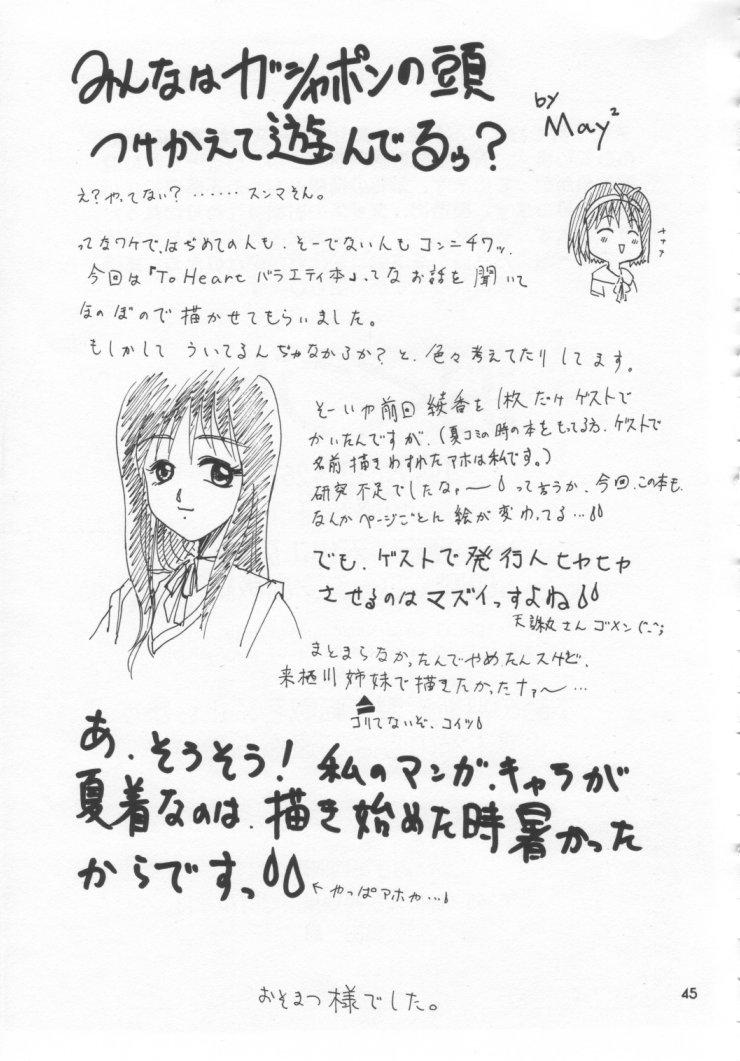 みんなはガシャポンの頭
つけかえて遊んでるぅ?
by May²
え?やってない?……スンマそん。
ってなワケで、はぢめての人も、そーでない人もコンニチワッ。
今回は『To Heart バラエティ本』ってなお話を聞いて
ほのぼので描かせてもらいました。
もしかして ういてるんぢゃなかろか?と、色々考えてたりしてます。
そーいや前回 綾香を1枚だけ ゲストで
かいたんですが、(夏コミの時の本をもってる方、ゲストで
名前描きわすれたアホは私です。)
研究不足でしたなァ〜 って言うか、今回、この本も、
なんかページごとん 絵が変わってる…
でも、ゲストで発行人ヒヤヒヤ
させるのはマズイっすよね
天誅丸さん ゴメン (^_^;
まとまらなかったんでやめたんスけど、
来栖川姉妹で描きたかったナァ〜…
コリてないぞ、コイツ
あ、そうそう! 私のマンガ、キャラが
夏着なのは、描き始めた時暑かった
からですっ
←やっぱアホや…
おそまつ様でした。
45